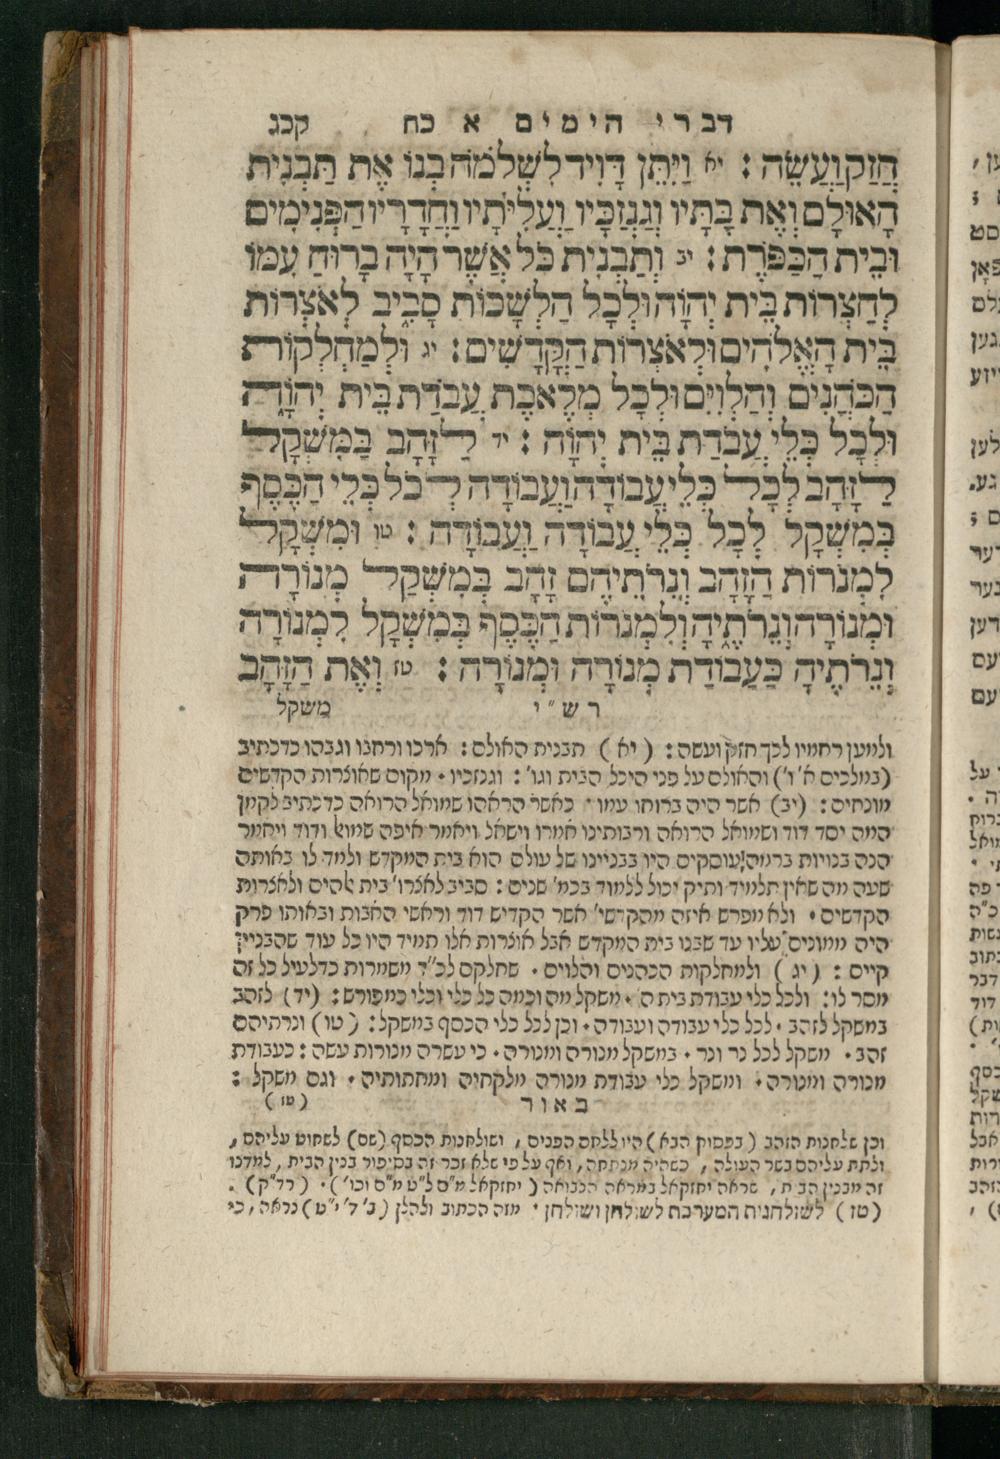 דברי הימים א כח קכג
חֲזַק וַעֲשֵׂה : יא וַיִּתֵּן דָּוִיד לִשְׁלֹמֹה בְנוֹ אֶת תַּבְנִית
הָאוּלָם וְאֶת בָּתָּיו וְגַנְזַכָּיו וַעֲלִיֹּתָיו וַחֲדָרָיו הַפְּנִימִים
וּבֵית הַכַּפֹּרֶת : יב וְתַבְנִית כֹּל אֲשֶׁר הָיָה בָרוּחַ עִמּוֹ
לְחַצְרוֹת בֵּית יְהוָה וּלְכָל הַלְּשָׁכוֹת סָבִיב לְאֹצְרוֹת
בֵּית הָאֱלֹהִים וּלְאֹצְרוֹת הַקֳּדָשִׁים : יג וּלְמַחְלְקוֹת
הַכֹּהֲנִים וְהַלְוִיִּם וּלְכָל מְלֶאכֶת עֲבֹדַת בֵּית יְהוָֹה
וּלְכָל כְּלֵי עֲבֹדַת בֵּית יְהוָֹה : יד לַזָּהָב בַּמִּשְׁקָל
לַזָּהָב לְכָל כְּלֵי עֲבוֹדָה וַעֲבוֹדָה לְכֹל כְּלֵי הַכֶּסֶף
בְּמִשְׁקָל לְכָל כְּלֵי עֲבוֹדָה וַעֲבוֹדָה : טו וּמִשְׁקָל
לִמְנֹרוֹת הַזָּהָב וְנֵרֹתֵיהֶם זָהָב בְּמִשְׁקַל מְנוֹרָה
וּמְנוֹרָה וְנֵרֹתֶיהָ וְלִמְנֹרוֹת הַכֶּסֶף בְּמִשְׁקָל לִמְנוֹרָה
וְנֵרֹתֶיהָ כַּעֲבוֹדַת מְנוֹרָה וּמְנוֹרָה : טז וְאֶת הַזָּהָב
רש״י משקל
ולמען רחמיו לכך חזק ועשה : (יא) תבנית האולם : ארכו ורחבו וגבהו כדכתיב
(במלכים א' ו') והאולם על פני היכל הבית וגו' : וגנזכיו • מקום שאוצרות הקדשים
מונחים : (יב) אשר היה ברוחו עמו • כאשר הראהו שמואל הרואה כדכתיב לקמן
המה יסד דוד ושמואל הרואה ורבותינו אמרו וישאל ויאמר איפה שמואל ודוד ויאמר
הנה בנויות ברמה עוסקים היו בבניינו של עולם הוא בית המקדש ולמד לו באותה
שעה מה שאין תלמיד ותיק יכול ללמוד בכמ' שנים : סביב לאצרו' בית אלהים ולאצרות
הקדשים • ולא מפרש איזה מהקדשי' אשר הקדיש דוד וראשי האבות ובאותו פרק
היה ממונים עליו עד שבנו בית המקדש אבל אוצרות אלו תמיד היו כל עוד שהבניין
קיים : (יג) ולמחלקות הכהנים והלוים • שחלקם לכ"ד משמרות כדלעיל כל זה
מסר לו : ולכל כלי עבודת בית ה' • משקל מה וכמה כל כלי וכלי כמפורש : (יד) לזהב
במשקל לזהב • לכל כלי עבודה ועבודה • וכן לכל כלי הכסף במשקל : (טו) ונרתיהם
זהב • משקל לכל נר ונר • במשקל מנורה ומנורה • כי עשרה מנורות עשה : כעבודת
מנורה ומנורה • ומשקל כלי עבודת מנורה מלקחיה ומחתותיה • וגם משקל :
באור (טז)
וכן שלחנות הזהב (בפסוק הבא) היו ללחם הפנים , ושולחנות הכסף (שם) לשחוט עליהם ,
ולתת עליהם בשר העולה , כשהיה מנתחה , ואף על פי שלא זכר זה בסיפור בנין הבית , למדנו
זה מבנין הבית , שראה יחזקאל במראה הנבואה (יחזקאל מ"ם ל"ט מ"ם וכו') • (רד"ק) .
(טז) לשולחנות המערכת לשולחן ושולחן • מזה הכתוב ולהלן (ב' ד' י"ט) נראה , כי